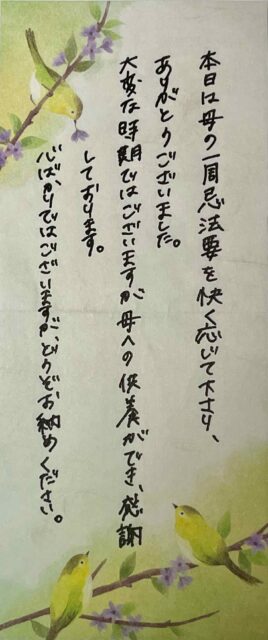 本日は母の一周忌法要を快く応じて下さり、
ありがとうございました。
大変な時期ではございますが母への供養ができ、感謝
しております。
心ばかりではございますが、どうぞお納めください。